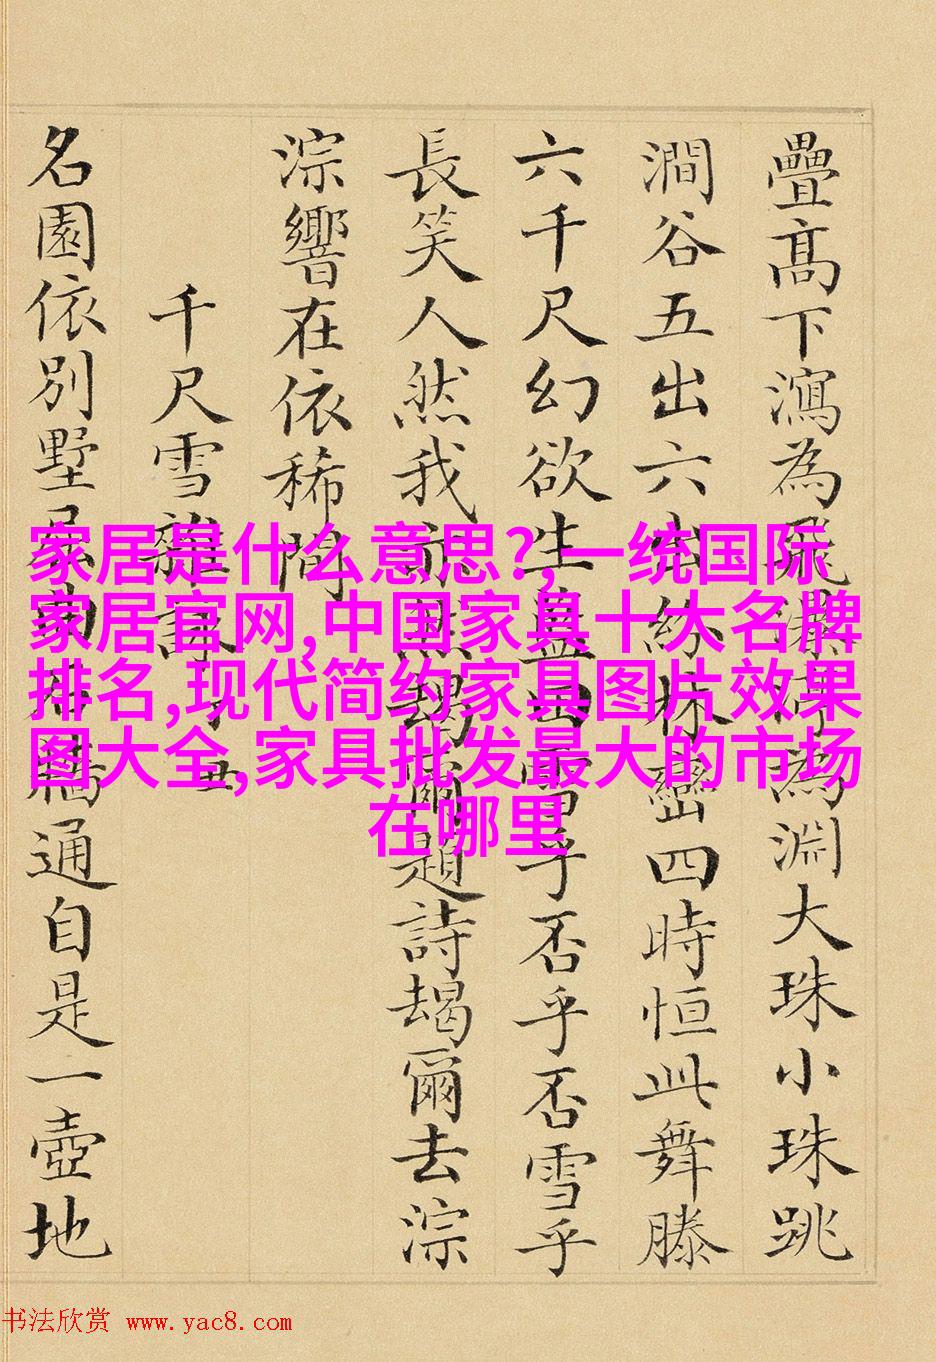 疊高下瀉為飛瀑渟為淵大珠小珠跳
澗谷五出六出紛林巒四時恒此舞滕
六千尺幻欲生益曰雪乎否乎否雪乎
長笑人然我前無題爾題詩朅爾去淙
淙響在依稀間
千尺雪雜詠
名園依別墅通自是一壺地
家居是什么意思?,一统国际
家居官网,中国家具十大名牌
排名,现代简约家具图片效果
图大全,家具批发最大的市场
在哪里
书法欣赏 www.yac8.com